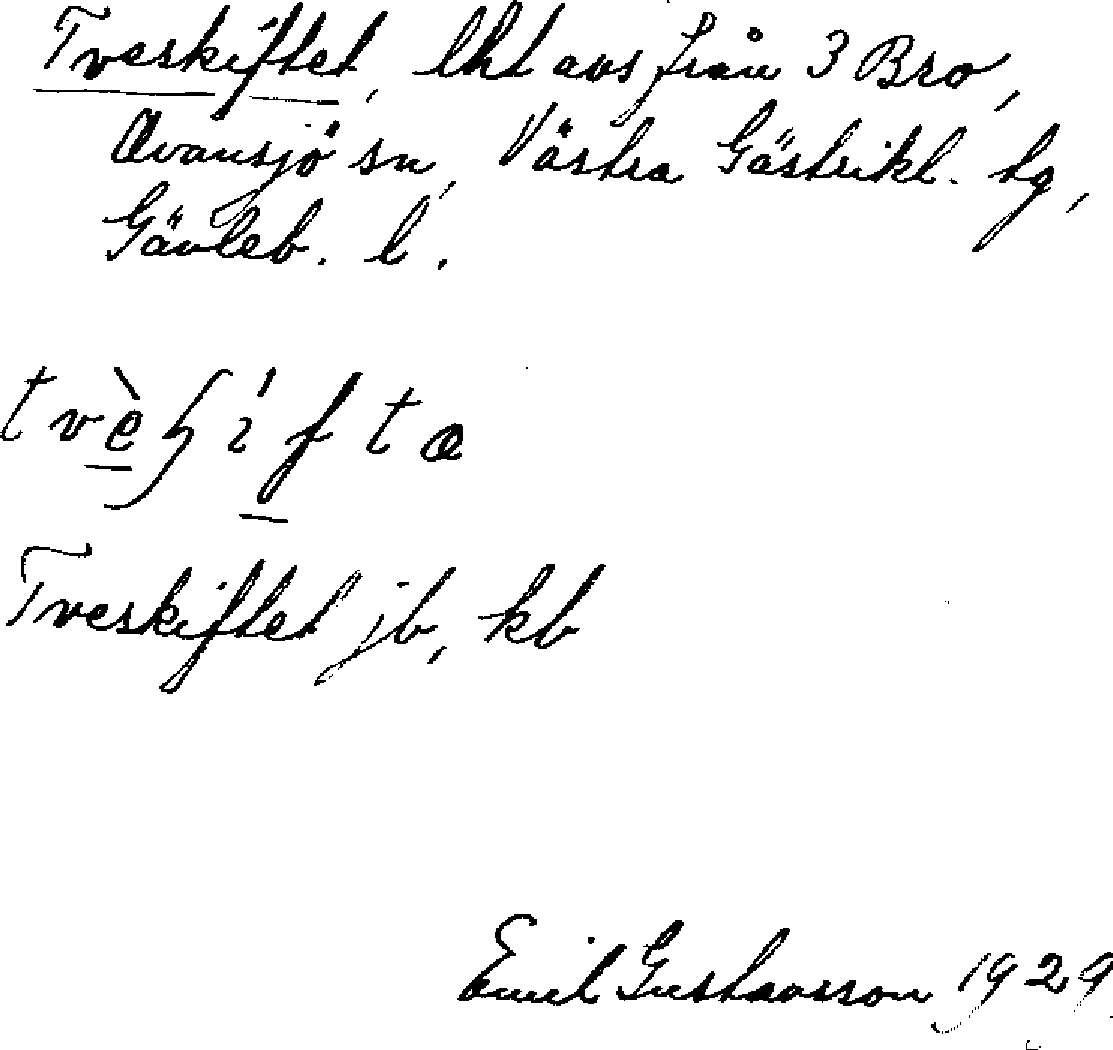 Tveskiftet, lht avs från 3 Bro,
Ovansjö sn, Västra Gästrikl. tg,
Gävleb. l.
tvèʃíftə
Tveskiftet jb, kb
Emil Gustavsson 1929